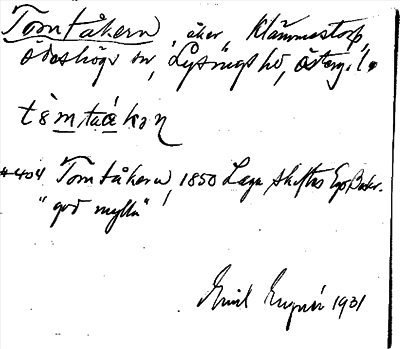 Tomtåkern, åker, Klämmestorp,
Ödeshögs sn, Lysings hd, Östergötl.
tòmtaåkan
#404 Tomtåkern, 1850 Laga skiftes Egobeskr.
"god mylla"
Emil 1931